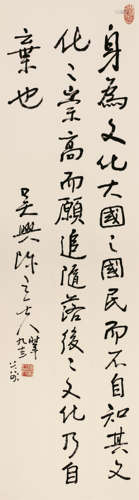 身為文化大國之國民而不自其文
化之崇高而願追隨落後之文化乃自
棄也
吳興陈立夫
時年九十三